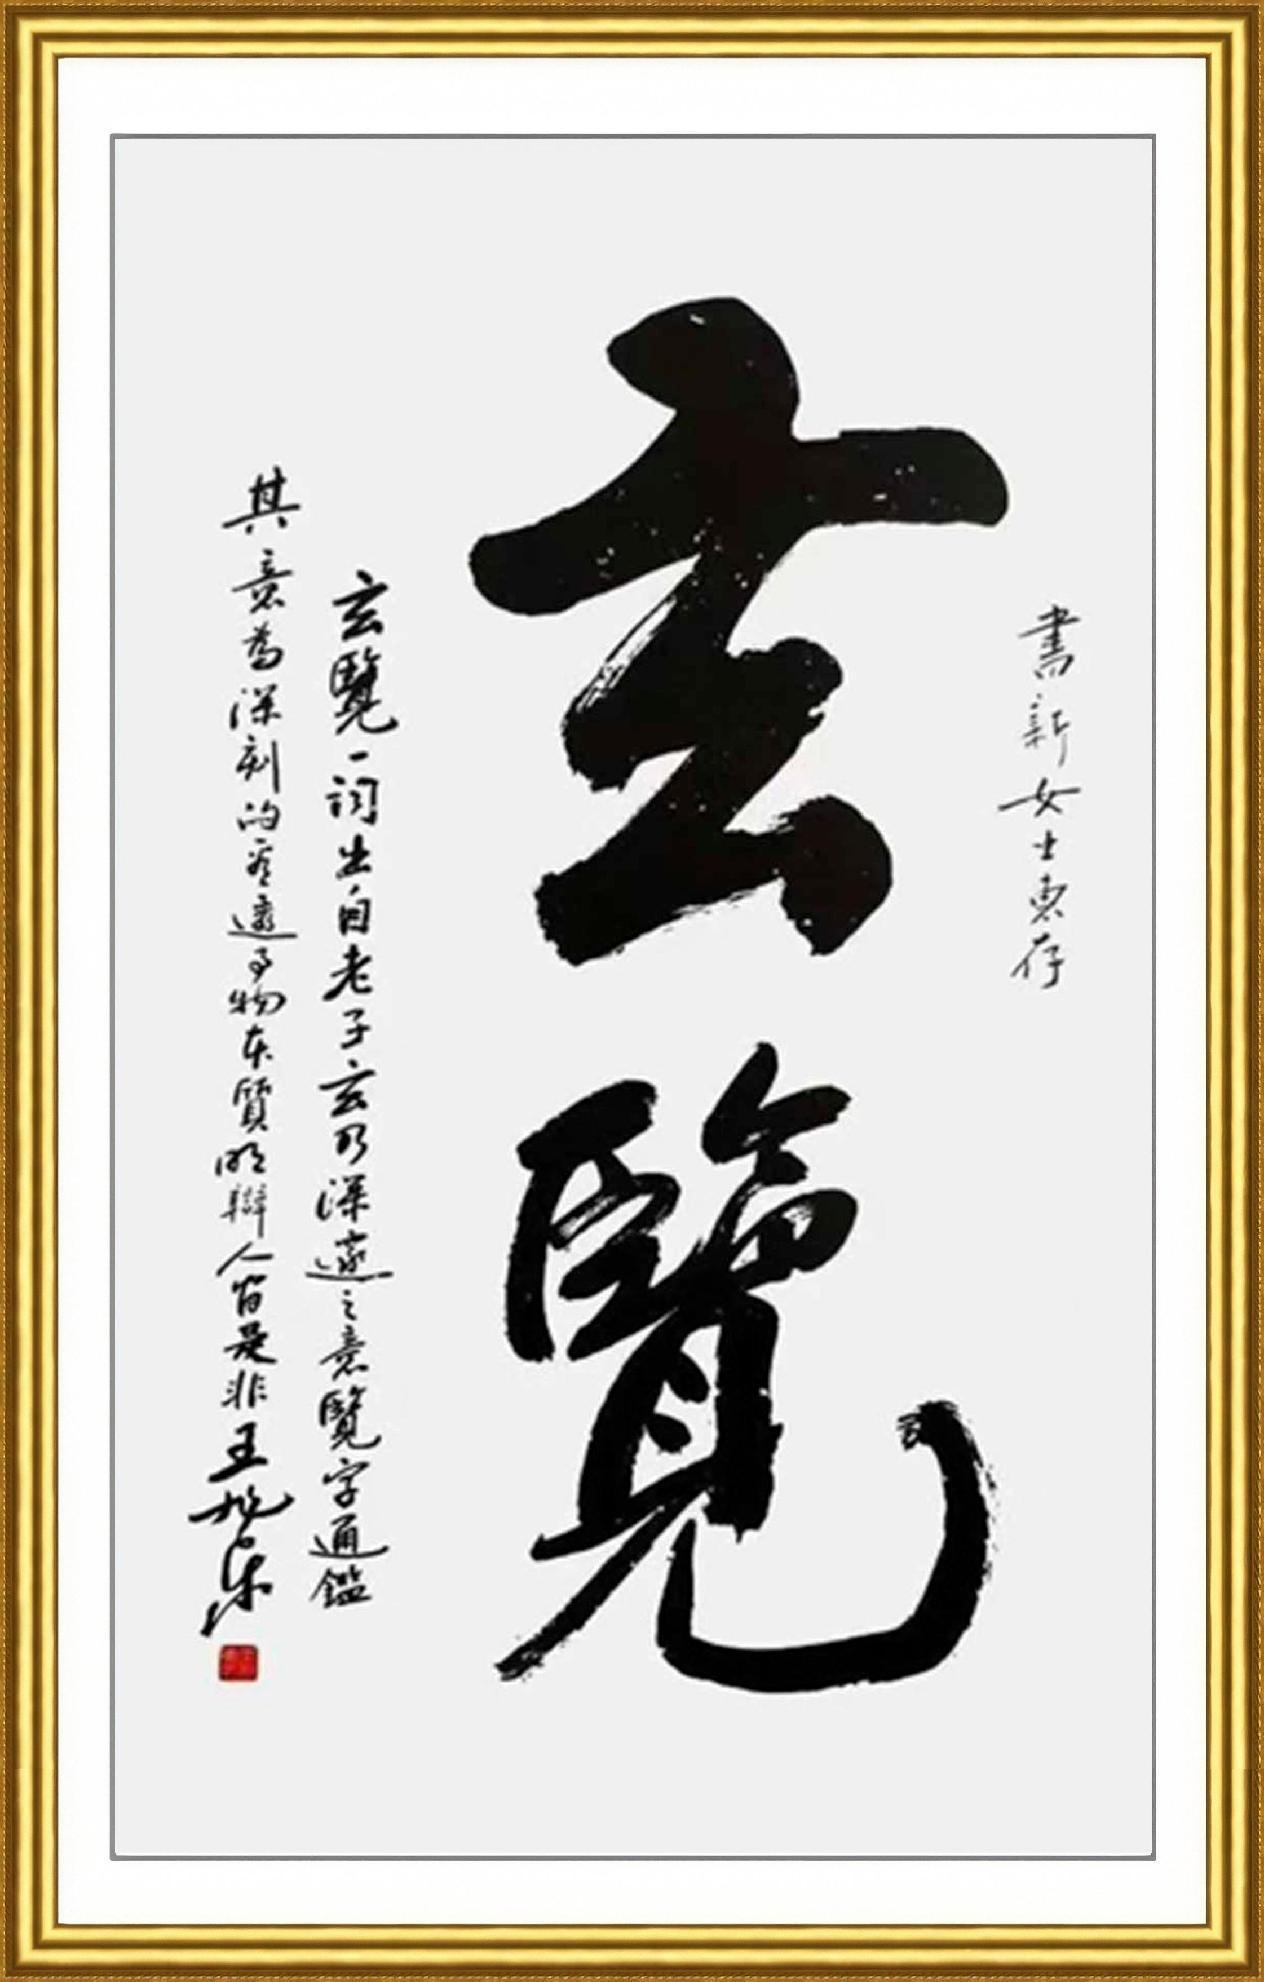 書新女士惠存
玄覽
玄覽一詞出自老子玄乃深邃之意覽字通鑑
其意為深刻的看透事物本質明辯人間是非王旭東